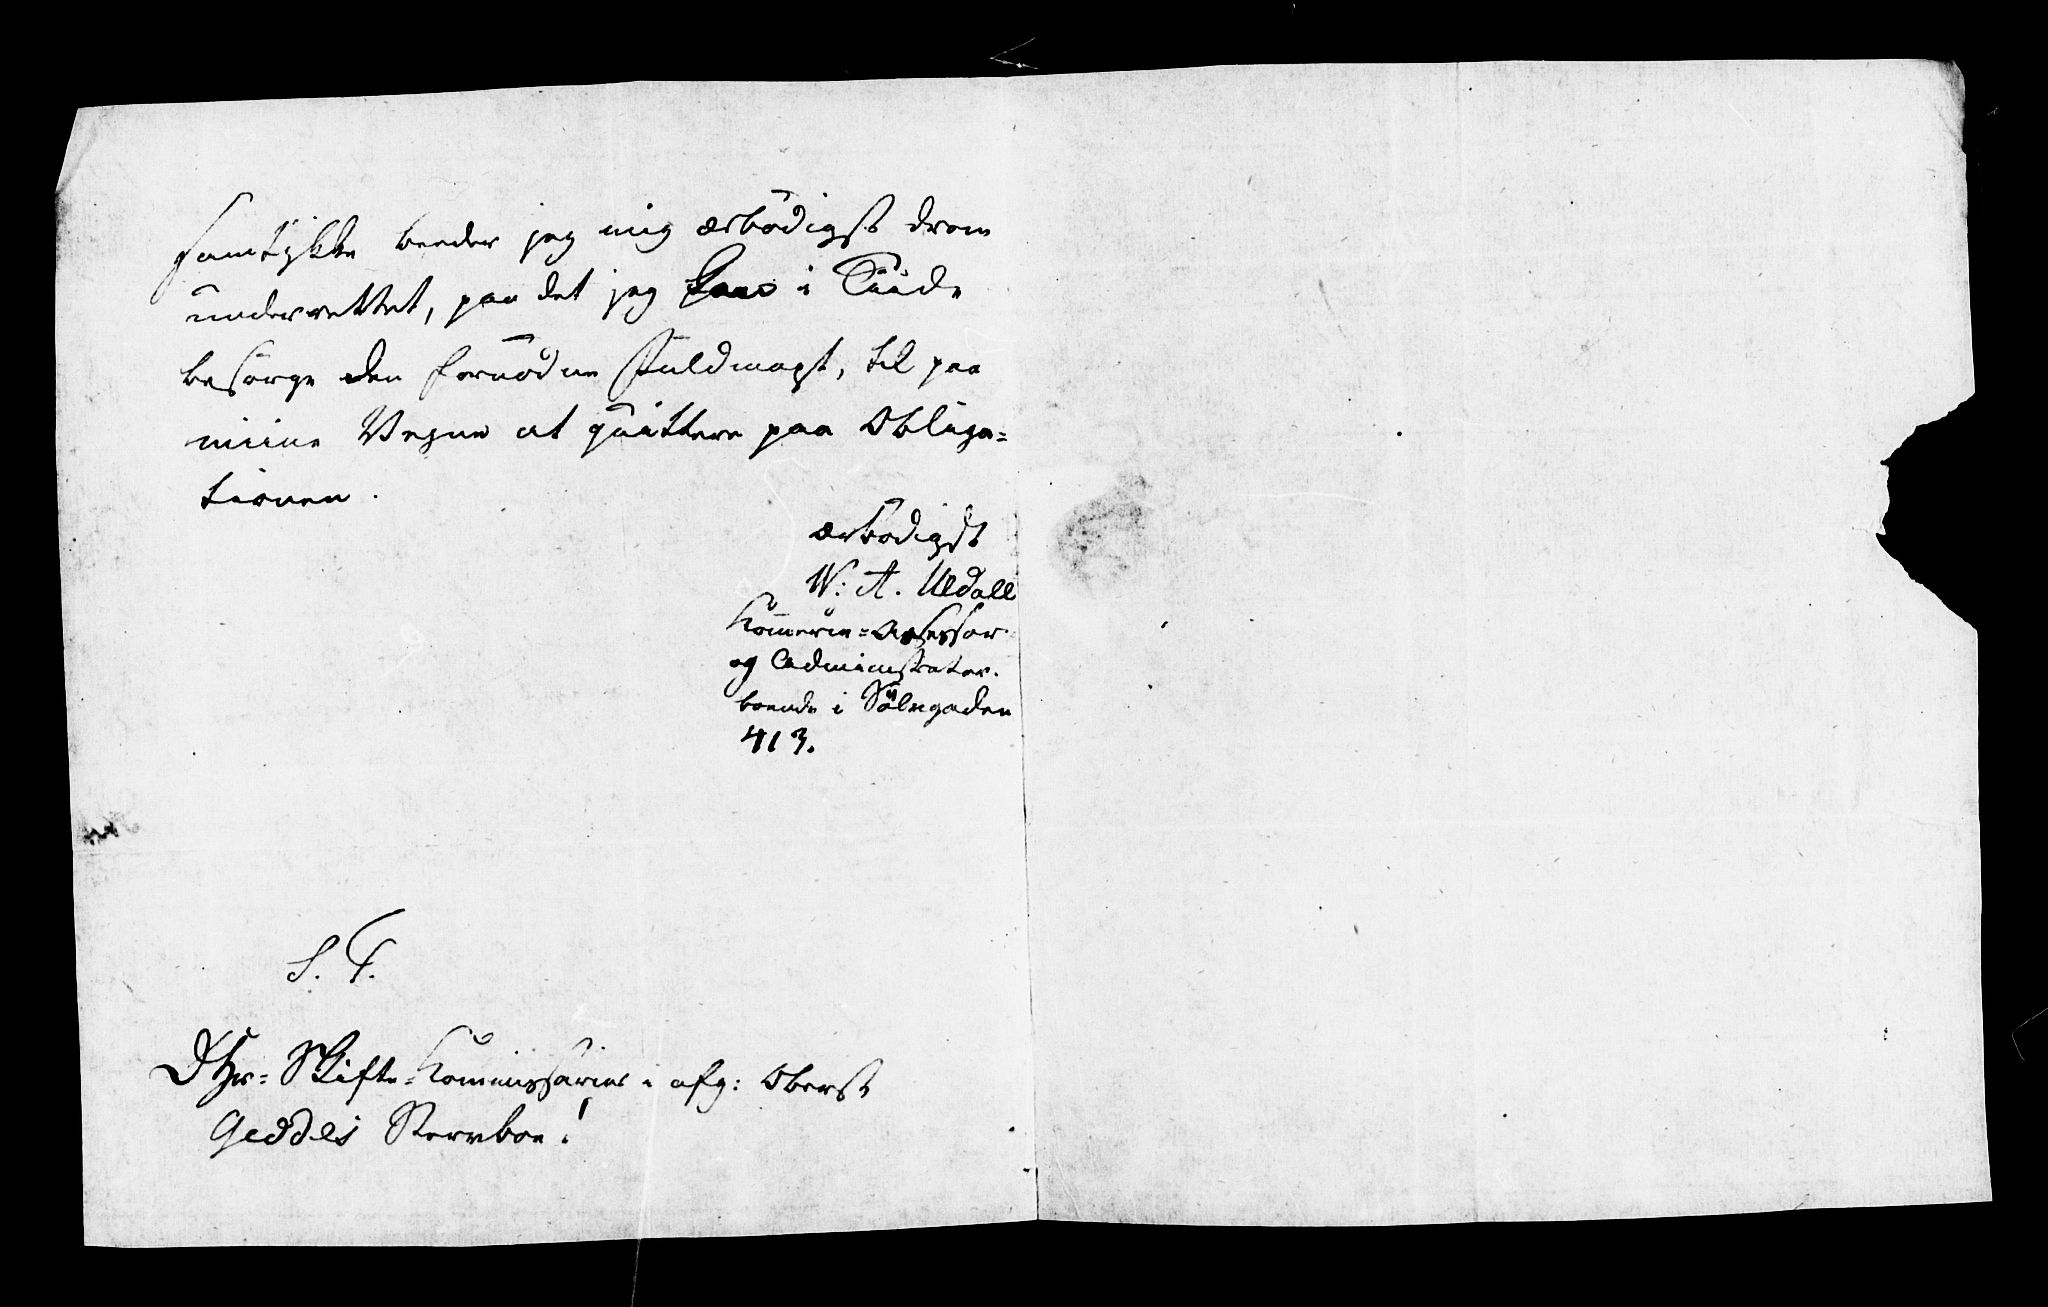 samtykke beeder jeg mig ærbødigst derom
underrettet, paa det jeg kan i Tiide
besørge den fornødne Fuldmagt, til paa
miine Vegne at quittere paa Obliga=
tionen.
ærbødigst
W: A. Uldall
Kammerie=Assessor
og Administrator.
boende i Sölvgaden
413.
S. T.
DHr= Skifte=Kommissarier i afg: Oberst
Geddes Stervboe!